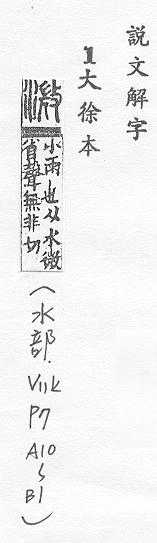 説文解字
1大徐本
溦 小雨也从水微
省聲無非切
(水部. V11k
P7
A10
S
B1)